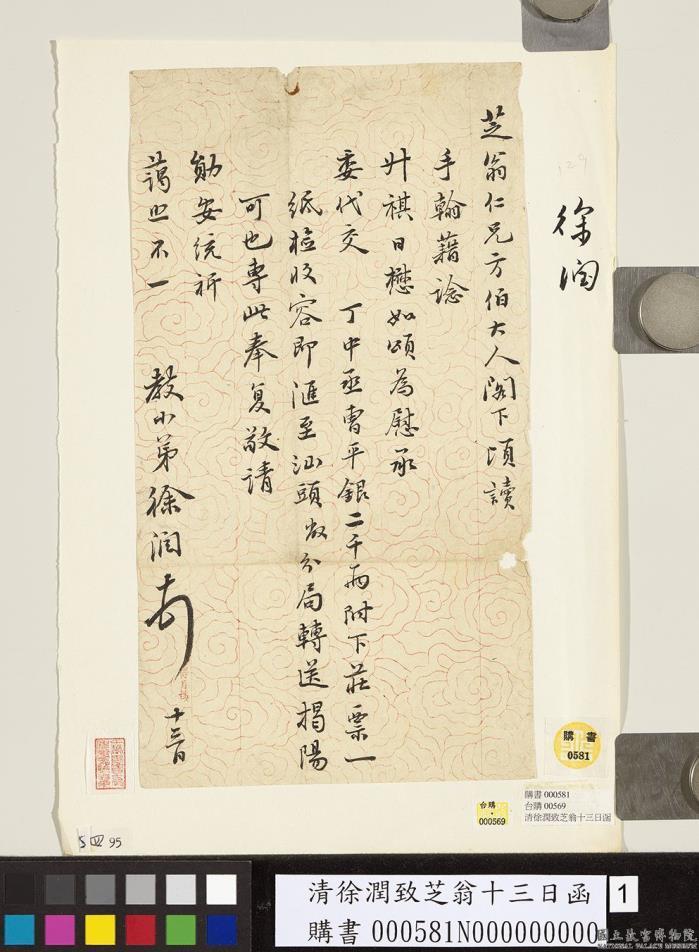 芝翁仁兄方伯大人閣下頃讀
手翰藉諗
升祺日懋如頌為慰承
委代交　丁中丞曹平銀二千兩附下莊票一
紙檢收容即滙至汕頭敝分局轉送揭陽
可也專此奉复敬請
勛安统祈
藹照不一
教小弟徐润
十三日
徐润
129
購書
0581
台購
000569
購書 000581
台購 00569
清徐潤致芝翁十三日函
S 四 95
清徐潤致芝翁十三日函
購書 000581N000000000
1
國立故宮博物院
NATIONAL PALACE MUSEUM